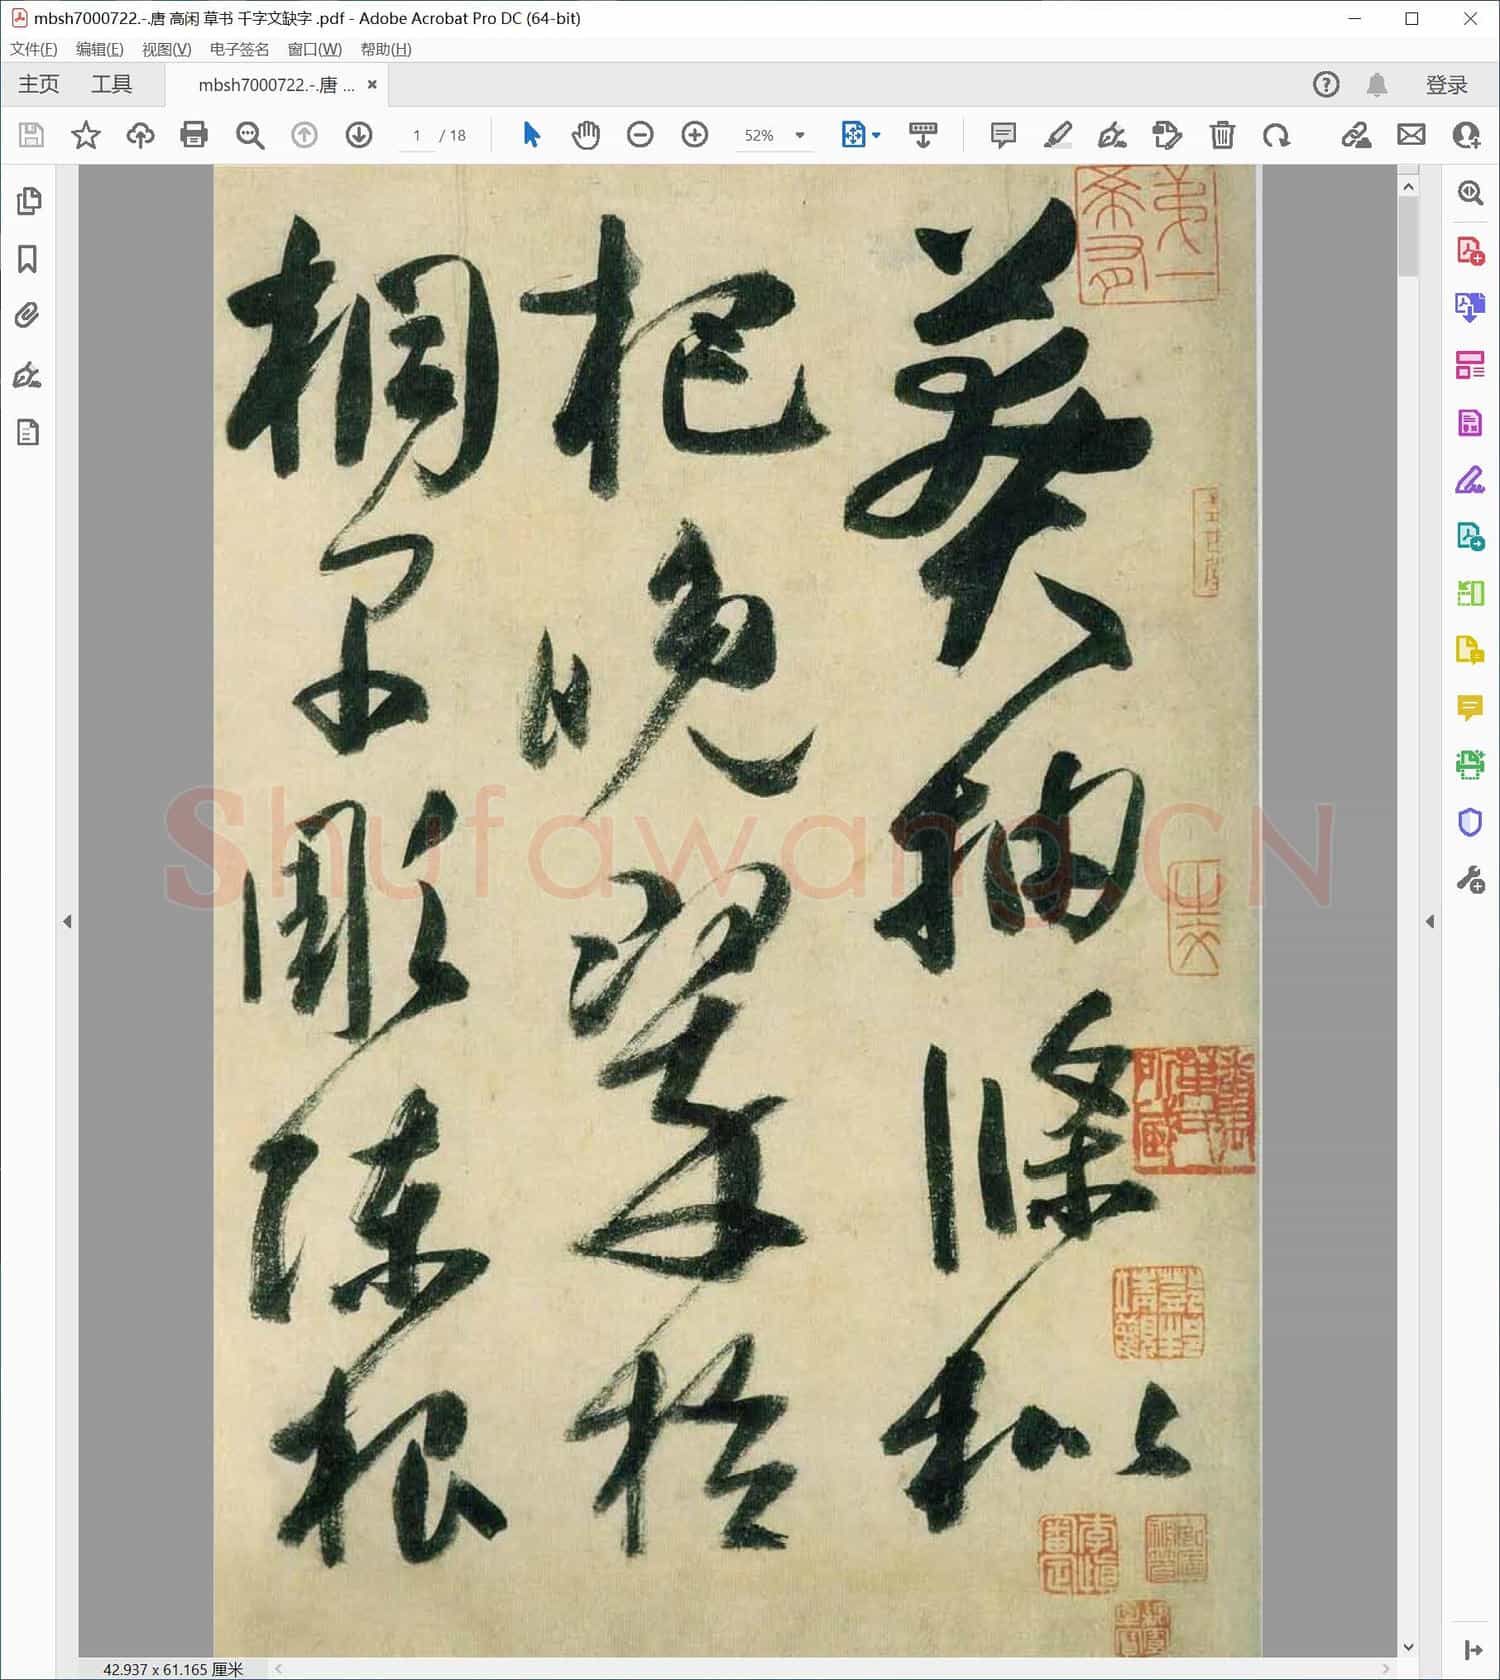 mbsh7000722.-.唐 高闲 草书 千字文缺字 .pdf - Adobe Acrobat Pro DC (64-bit)
文件(F) 编辑(E) 视图(V) 电子签名 窗口(W) 帮助(H)
主页 工具 mbsh7000722.-.唐 ... 登录
1 / 18 52%
莽抽條枇
杷晚翠梧
桐早彫陳根
Shufawang.CN
42.937 x 61.165 厘米